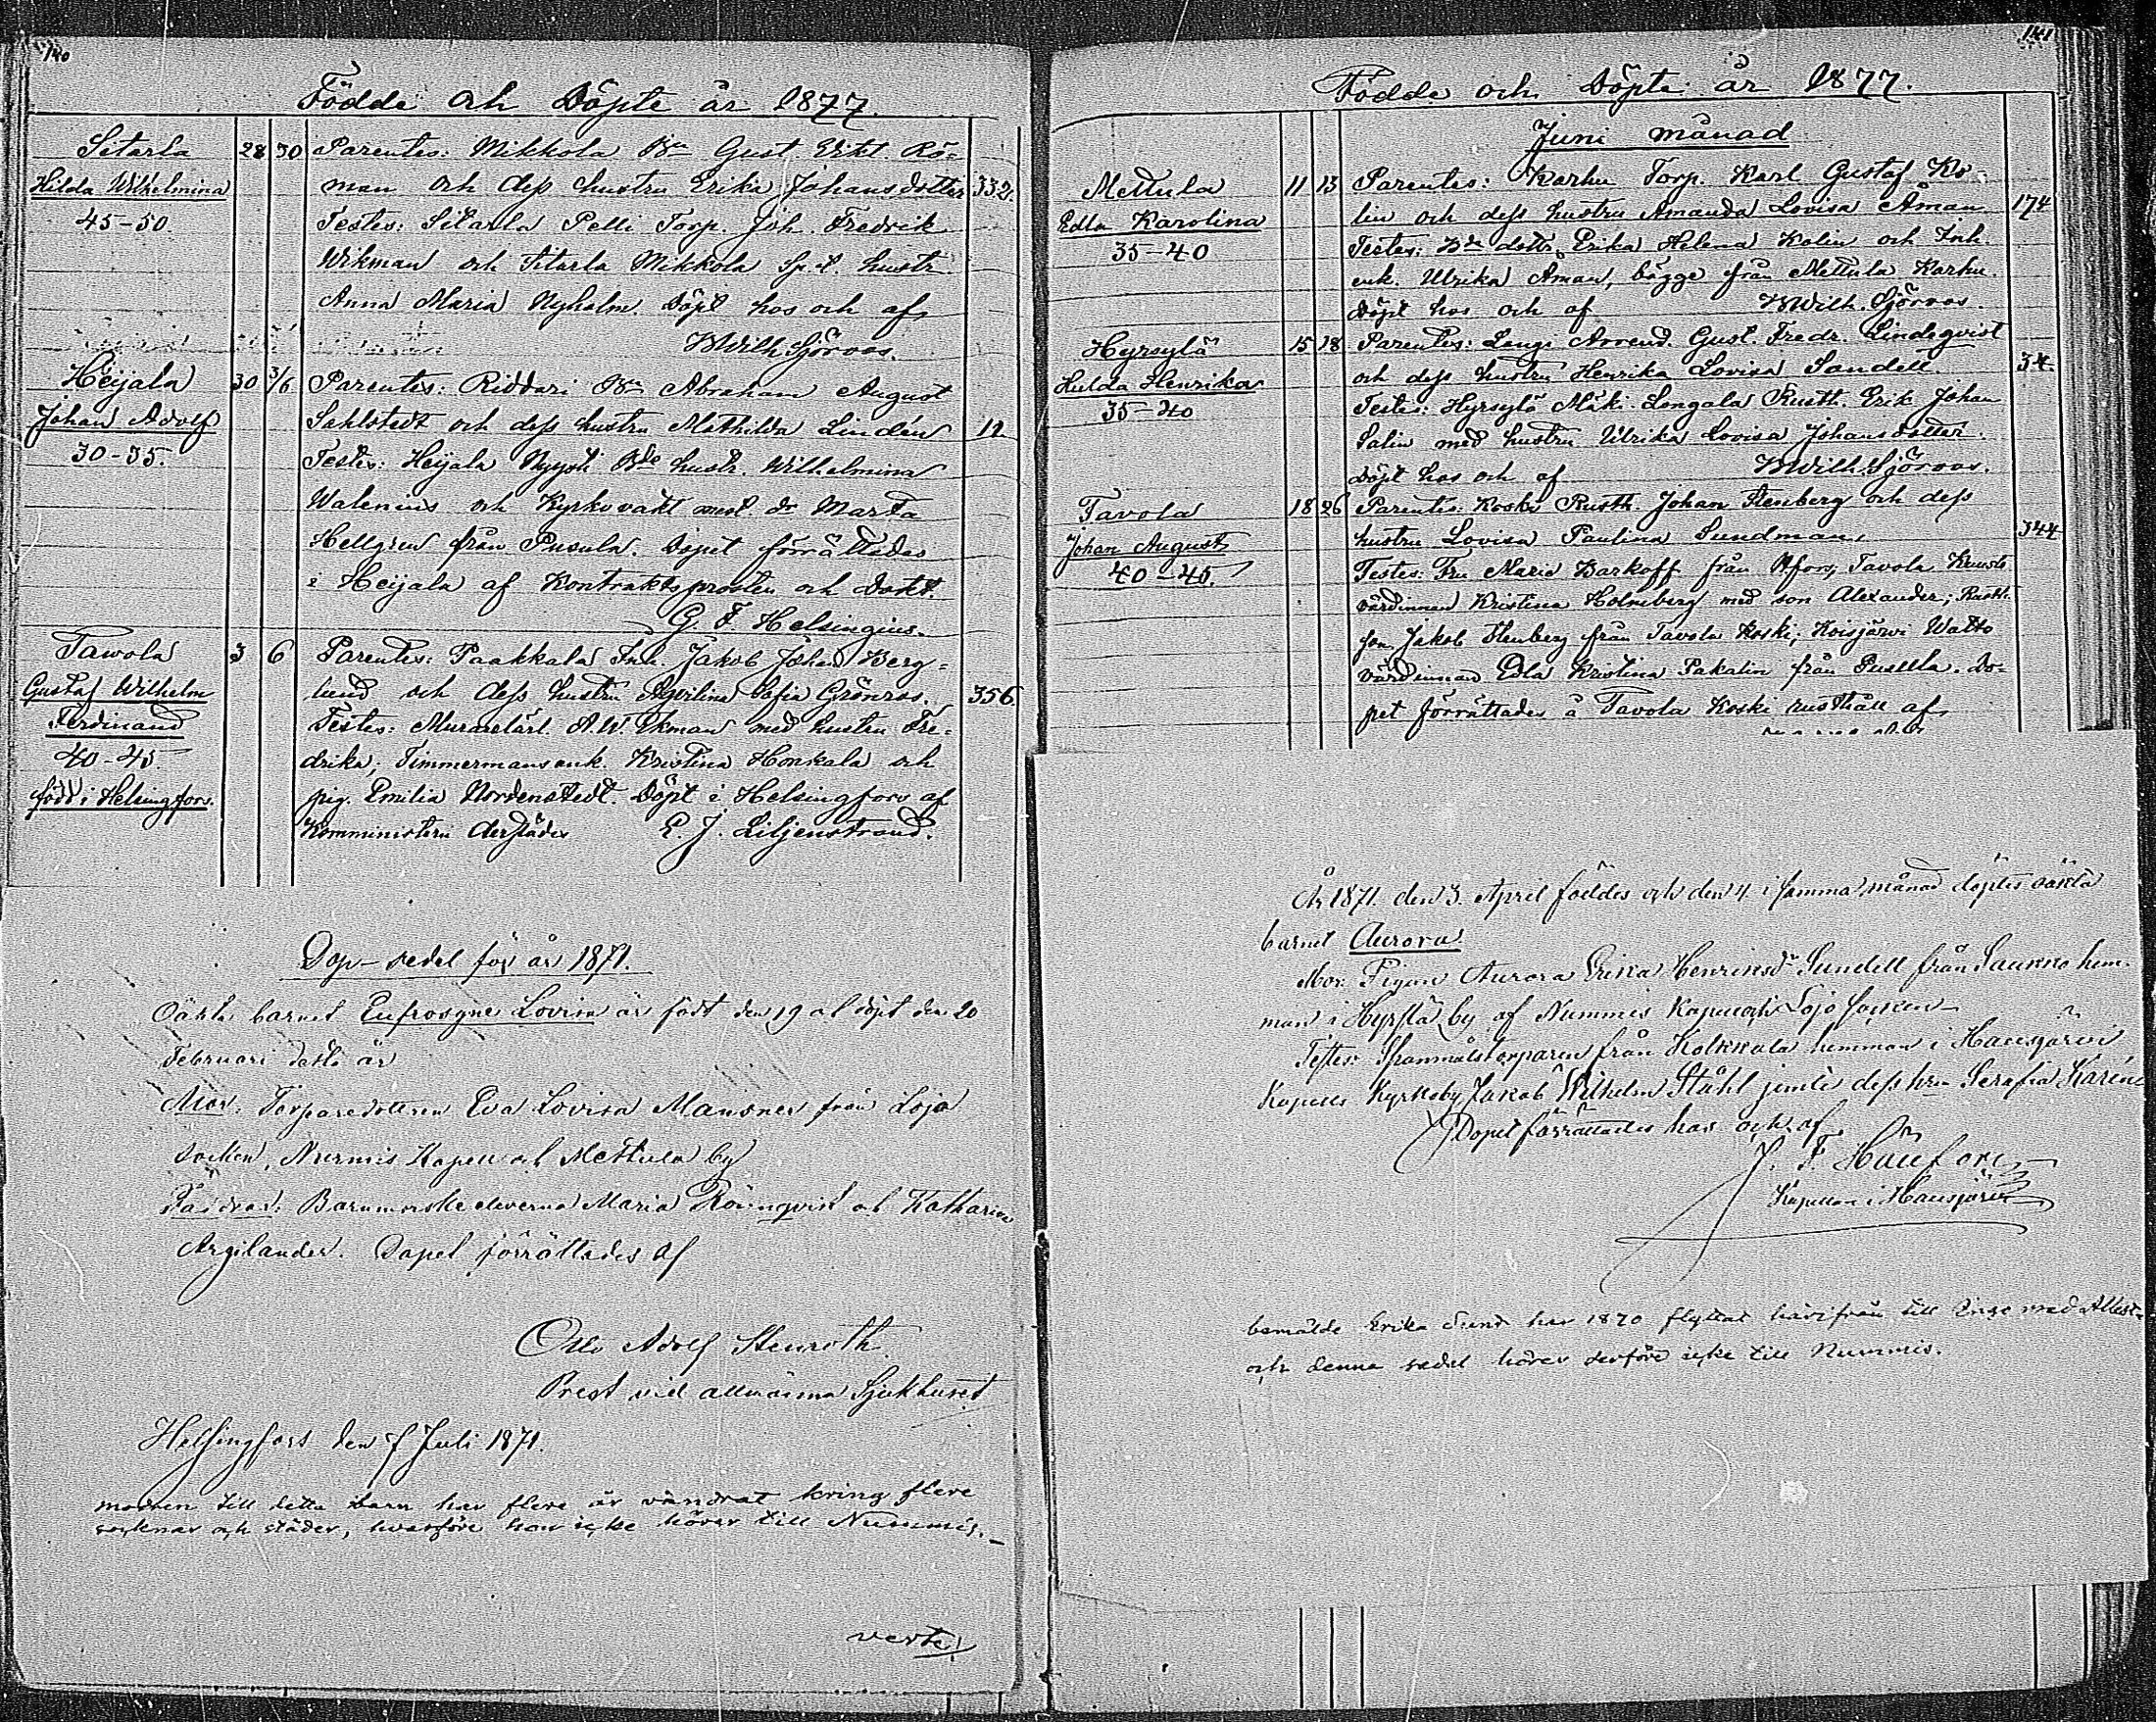 140
Födde och Döpte år 1877.
Sitarla 28 30 Parentes: Mikkola Gust. Erikt. Rö-
Hilda Wilhelmina man och dess hustru Erika Johansdotter 332.
45-50. Testes: Sitarla Pelli Torp. Joh. Fredrik
Wikman och Sitarla Mikkola hustr.
Anna Maria Nyholm. Döpt hos och af
KWilh. Sjöroos.
Heijala 30 3/6 Parentes: Riddari Abraham August
Johan Adolf Sahlstedt och dess hustru Mathilda Lindén 12.
30-35. Testes: Heijala Nyysti hustr. Wilhelmina
Walenius och Kyrkovakt Marta
Hellgren från Pusula. Dopet förrättades
i Heijala af Kontraktsprosten och Dokt.
G. F. Helsingius.
Tawola 3 6 Parentes: Paakkala Inh. Jakob Johan Berg-
Gustaf Wilhelm lund och dess hustru Agvilina Sofia Grönroos. 356.
Ferdinand Testes: Murarelärl. A. W. Ekman med hustru Fre-
40-45. drika; Timmermansenk. Kristina Honkala och
född i Helsingfors. pig. Emilia Nordenstedt. Döpt i Helsingfors af
Komministern derstädes E. J. Liljenstrand.
Dop-sedel för år 1871.
Oäkta barnet Eufrosyne Lovisa är födt den 19 och döpt den 20
Februari detta år
Mor: Torparedottern Eva Lovisa Mansner från Lojo
socken, Nummis Kapell och Mettula by
Faddrar: Barnmorske eleverna Maria Rönnqvist och Katharina
Argilander. Dopet förrättades af
Otto Adolf Stenroth.
Prest vid allmänna Sjukhuset
Helsingfors den 7 Juli 1871.
modren till detta barn har flere år vandrat kring flere
socknar och städer, hvarföre hon icke hörer till Nummis.-
verte!
141
Födde och Döpte år 1877.
Juni månad
Mettula 11 13 Parentes: Karhu Torp. Karl Gustaf Ko-
Edla Karolina lin och dess hustru Amanda Lovisa Åman 174
35-40 Testes: dottr. Erika Helena Kolin och Inh.
enk. Ulrika Åman, bägge från Mettula Karhu.
Döpt hos och af KWilh. Sjöroos.
Hyrsylä 15 18 Parentes: Lengi Arrend. Gust. Fredr. Lindeqvist
Hulda Henrika och dess hustru Henrika Lovisa Sandell. 34.
35-40 Testes: Hyrsylä Mäki-Longala Rustt. Erik Johan
Salin med hustru Ulrika Lovisa Johansdotter.
Döpt hos och af KWilh. Sjöroos.
Tavola 18 26 Parentes: Koski Rustth. Johan Stenberg och dess
Johan August hustru Lovisa Paulina Sundman, 344
40-45. Testes: Fru Maria Barkoff från Hfors, Tavola
värdinnan Kristina Holmberg med son Alexander; Rustth.
son Jakob Stenberg från Tavola Koski; Koisjärvi Watto
värdinnan Edla Kristina Pakalin från Pusula. Do-
pet förrättades å Tavola Koski rusthåll af
År 1871. den 3. April föddes och den 4. i samma månad döptes oäkta
barnet Aurora.
Mor: Pigan Aurora Erika Henriksdr Sundell från Saukko hem-
man i Hyrslä by af Nummis Kapell och Lojo socken
Testes: Spanmålstorparen från Kolkkala hemman i Hausjärvi
Kapells Kyrkoby Jakob Wilhelm Ståhl jemte dess hru Serafia Karin
Dopet förrättades hos och af
Kapellan i Hausjärvi
bemälde Erika Sund har 1870 flyttat härifrån till Inga med Attest
och denna sedel hörer derföre icke till Nummis.